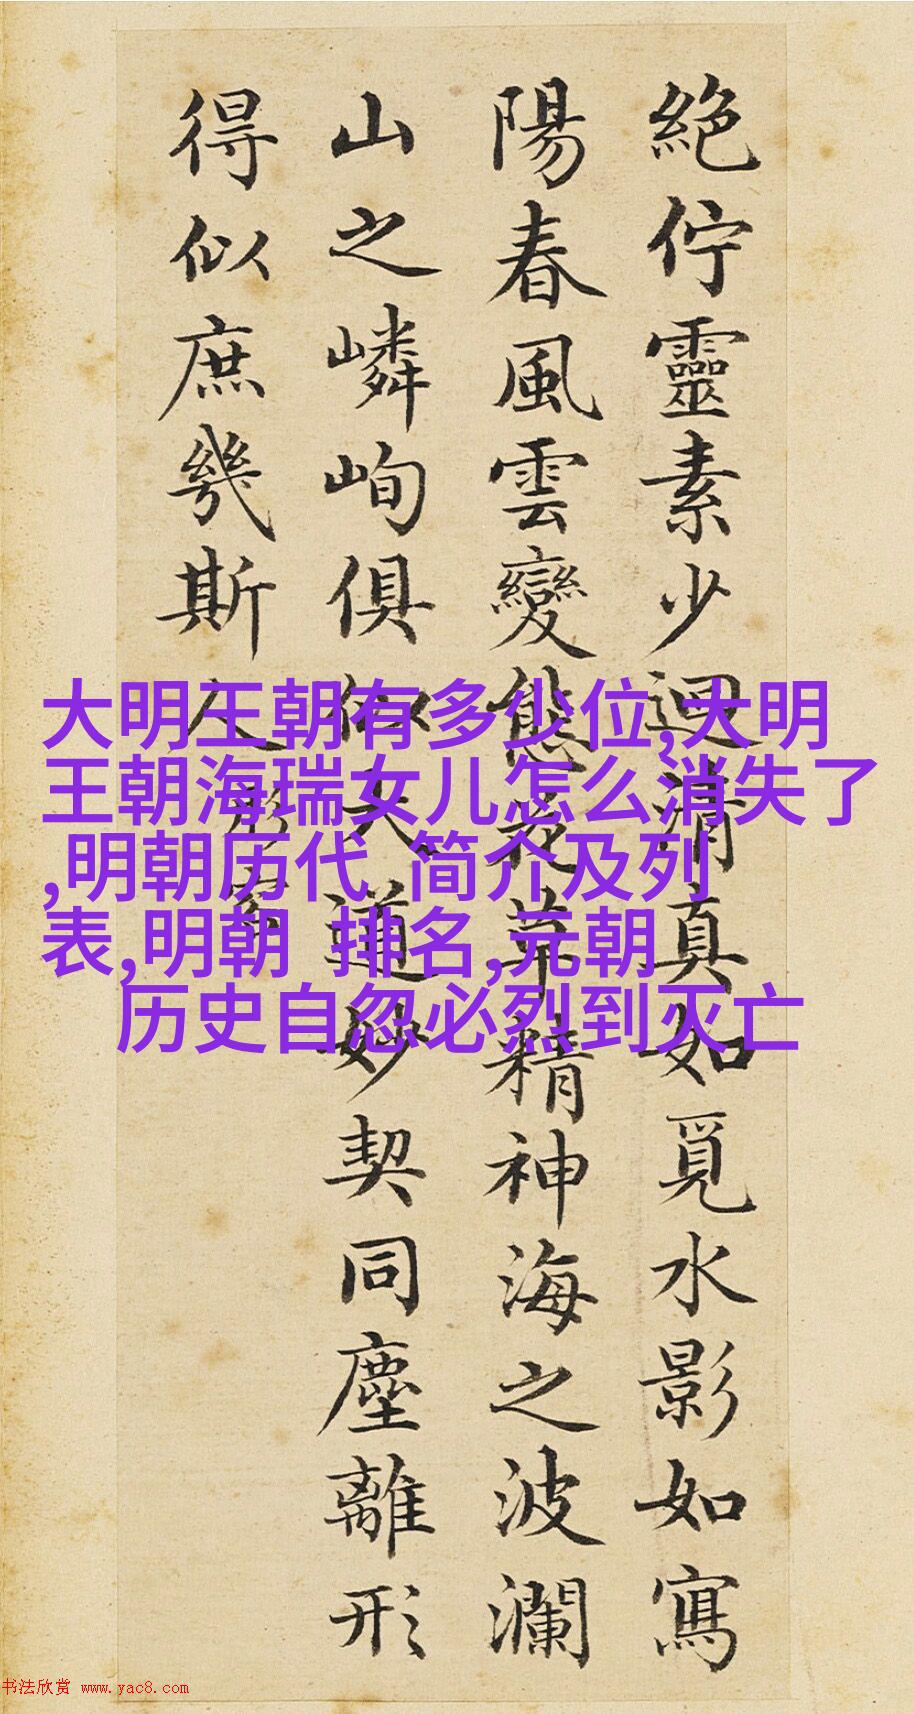 絕佇靈素少迴清真如覓水影如寫
陽春風雲變態花草精神海之波瀾
山之嶙峋俱似大道妙契同塵離形
得似庶幾斯人
大明王朝有多少位,大明
王朝海瑞女儿怎么消失了
,明朝历代 简介及列
表,明朝 排名,元朝
历史自忽必烈到灭亡
书法欣赏 www.yac8.com